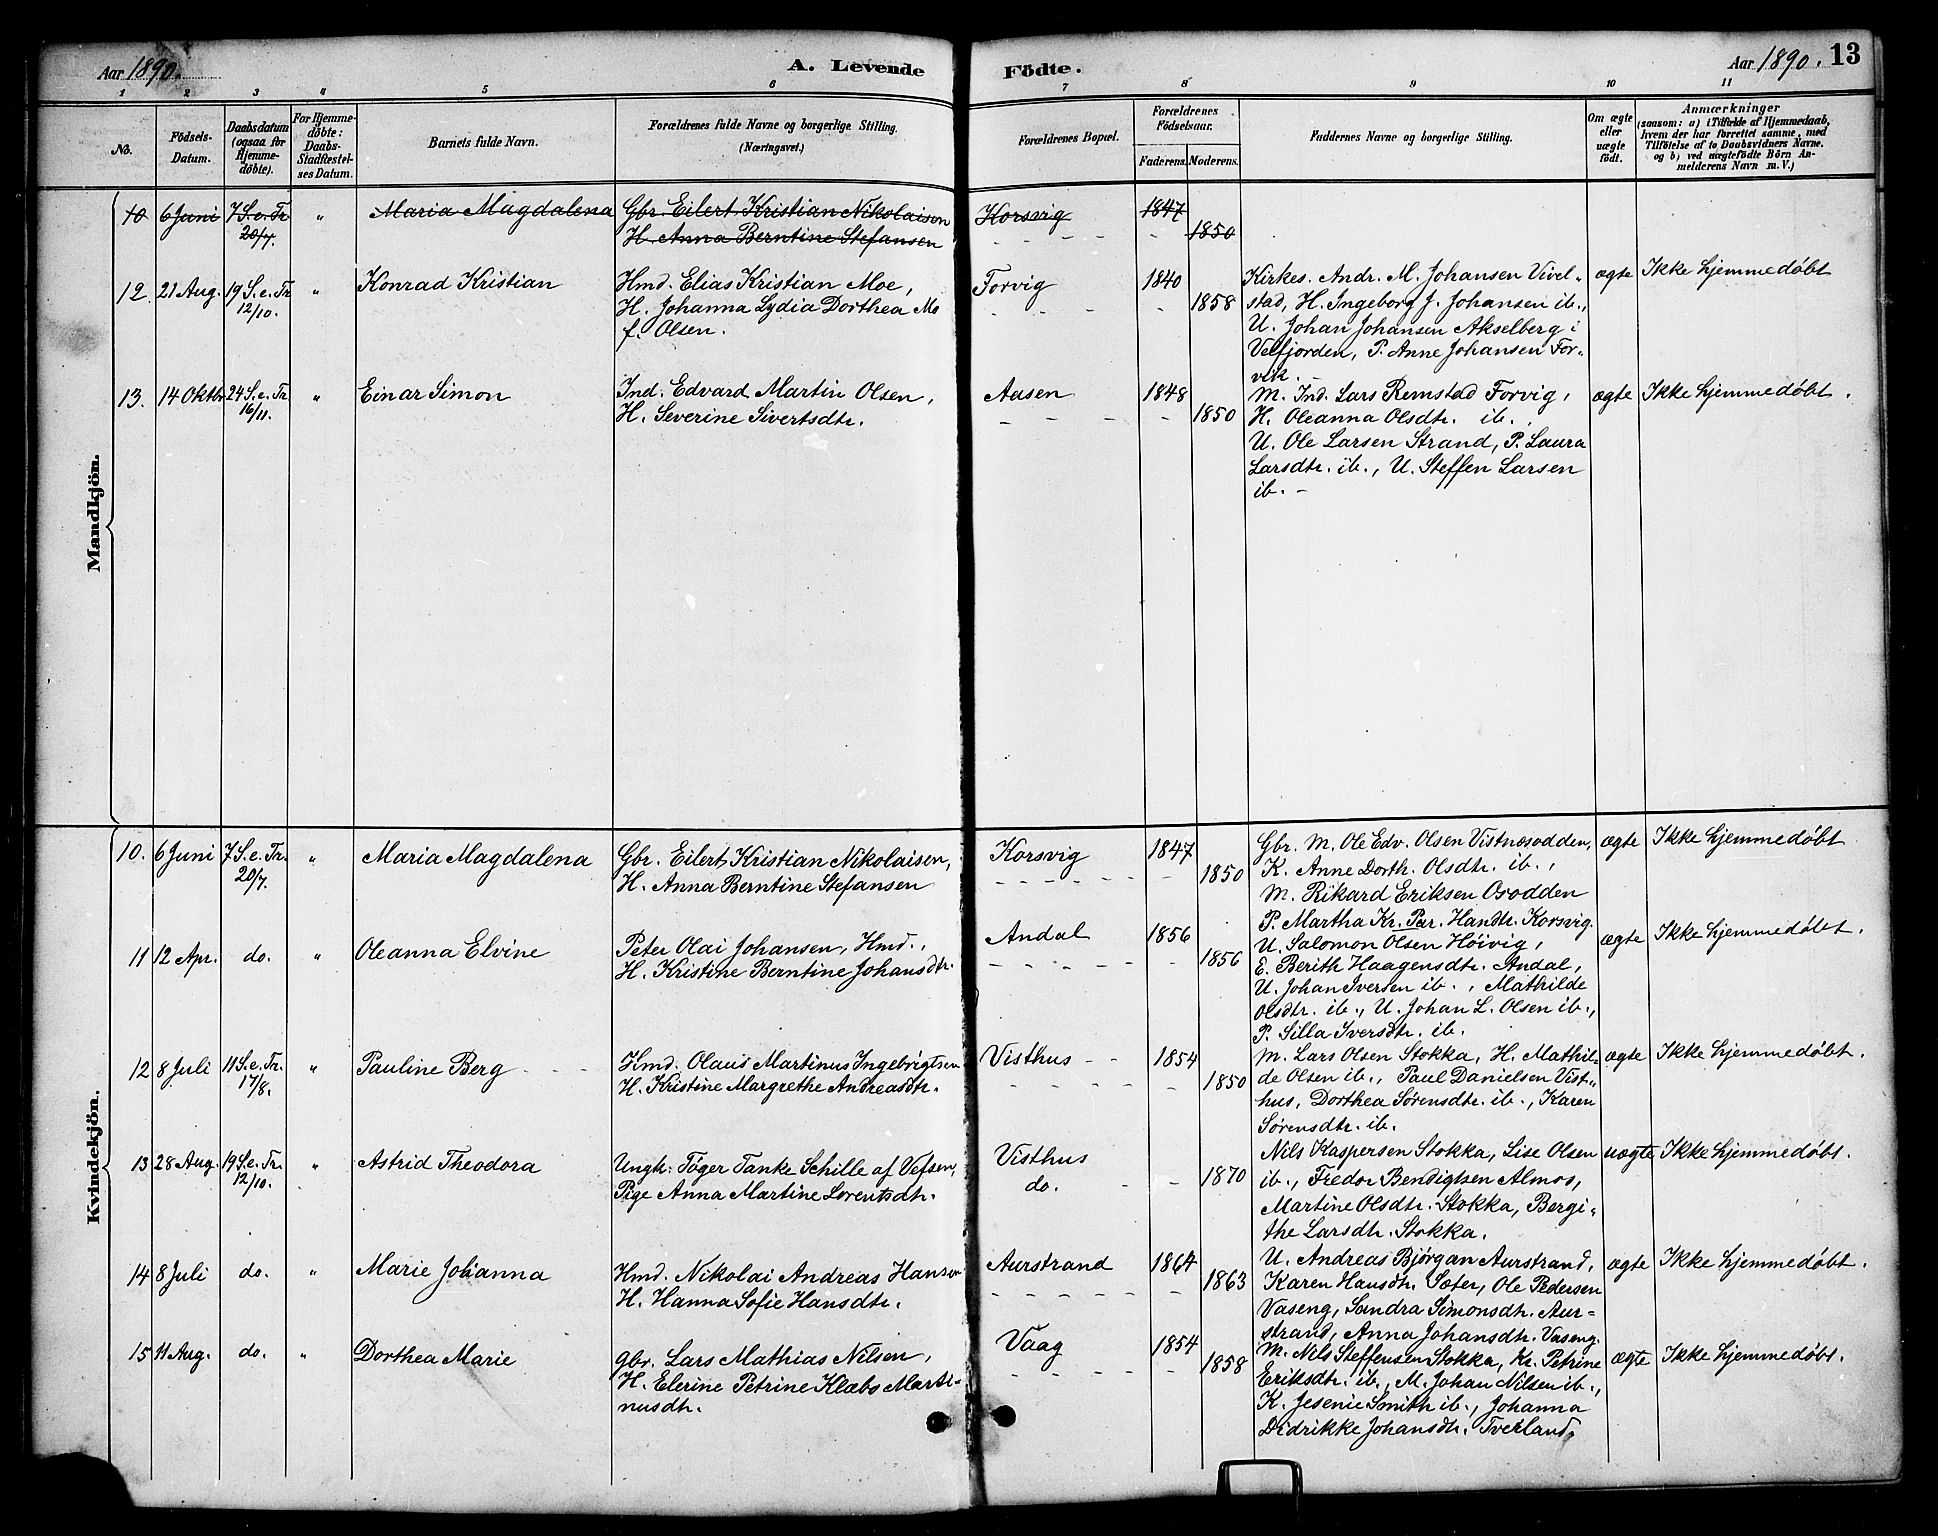 Aar 1890. A. Levende Födte. Aar 1890. 13
1 2 3 4 5 6 7 8 9 10 11
No.
Födsels-
Datum.
Daabsdatum
(ogsaa for
Hjemme-
döbte).
For Hjemme-
döbte:
Daabs-
Stadfæstel-
ses Datum.
Barnets fulde Navn.
Forældrenes fulde Navne og borgerlige Stilling.
(Næringsvei.)
Forældrenes Bopæl.
Forældrenes
Födselsaar.
Faderens. Moderens.
Faddernes Navne og borgerlige Stilling.
Om ægte
eller
uægte
født.
Anmærkninger
(saasom: a) i Tilfælde af Hjemmedaab,
hvem der har forrettet samme, med
Tilföielse af to Daabsvidners Navne.
og b) ved uægtefödte Börn An-
melderens Navn m.V.)
Mandkjön.
10 6 Juni 7 S. e. Tr 20/7 " Maria Magdalena
Gbr. Eilert Kristian Nikolaisen
H. Anna Berntine Stefansen
Korsvig 1847
1850
12. 21 Aug. 19 S. e. Tr 12/10. " Konrad Kristian
Hmd. Elias Kristian Moe,
H. Johanna Lydia Dorthea Mo
f. Olsen.
Forvig 1840
1858
Kirkes. Andr. M. Johansen Vivel-
stad, H. Ingeborg J. Johansen ib.,
U. Johan Johansen Akselberg i
Velfjorden, P. Anne Johansen For-
vik.
ægte Ikke hjemmedøbt
13. 14 Oktbr 24 S. e. Tr 16/11. " Einar Simon
Ind. Edvard Martin Olsen,
H. Severine Sivertsdtr.
Aasen 1848
1850
M. Ind. Lars Remstad Forvig,
H. Oleanna Olsdtr. ib.,
U. Ole Larsen Strand, P. Laura
Larsdtr. ib., U. Steffen Larsen
ib. -
ægte Ikke hjemmedøbt.
Kvindekjön.
10. 6 Juni 7 S. e. Tr. 20/7. " Maria Magdalena
Gbr. Eilert Kristian Nikolaisen,
H. Anna Berntine Stefansen
Korsvig 1847
1850
Gbr. M. Ole Edv. Olsen Vistnæsodden,
K. Anne Dorth. Olsdtr. ib.,
M. Rikard Eriksen Osodden
P. Martha Kr. Per. Handtr. Korsvig.
ægte Ikke hjemmedøbt
11 12 Apr. do. " Oleanna Elvine
Peter Olai Johansen, Hmd.,
H. Kristine Berntine Johansdtr.
Andal 1856
1856
U. Salomon Olsen Høivig,
E. Berith Haagensdtr. Andal,
U. Johan Iversen ib., Mathilde
Olsdtr. ib., U. Johan L. Olsen ib.,
P. Silla Iversdtr. ib.
ægte Ikke hjemmedøbt.
12 8 Juli 11 S. e. Tr. 17/8. " Pauline Berg
Hmd. Olaus Martinus Ingebrigtsen
H. Kristine Margrethe Andreasdtr.
Visthus 1854
1850
M. Lars Olsen Stokka, H. Mathil-
de Olsen ib., Paul Danielsen Vist-
hus, Dorthea Sørensdtr. ib., Karen
Sørensdtr. ib.
ægte Ikke hjemmedøbt.
13 28 Aug. 19 S. e. Tr. 12/10. " Astrid Theodora
Ungk. Tøger Tanke Schille af Vefsen,
Pige Anna Martine Lorentsdtr.
Visthus
do. 1870
Nils Kaspersen Stokka, Lise Olsen
ib., Fredor Bendigtsen Almos,
Martine Olsdtr. Stokka, Bergi-
the Larsdtr. Stokka.
uægte Ikke hjemmedøbt.
14 8 Juli do. " Marie Johanna
Hmd. Nikolai Andreas Hansen
H. Hanna Sofie Hansdtr.
Aurstrand 1864
1863
U. Andreas Bjørgan Aurstrand,
Karen Hansdtr. Sæter, Ole Pedersen
Vaseng, Sandra Simonsdtr. Aur-
strand, Anna Johansdtr. Vaseng.
ægte Ikke hjemmedøbt.
15 11 Aug. do. " Dorthea Marie
Gbr. Lars Mathias Nilsen,
H. Elerine Petrine Klæbo Marti-
nusdtr.
Vaag 1854
1858
M. Nils Steffensen Stokka, Kr. Petrine
Eriksdtr. ib., M. Johan Nilsen ib.,
K. Jesenie Smith ib., Johanna
Didrikke Johansdtr. Tverland.
ægte Ikke hjemmedøbt.